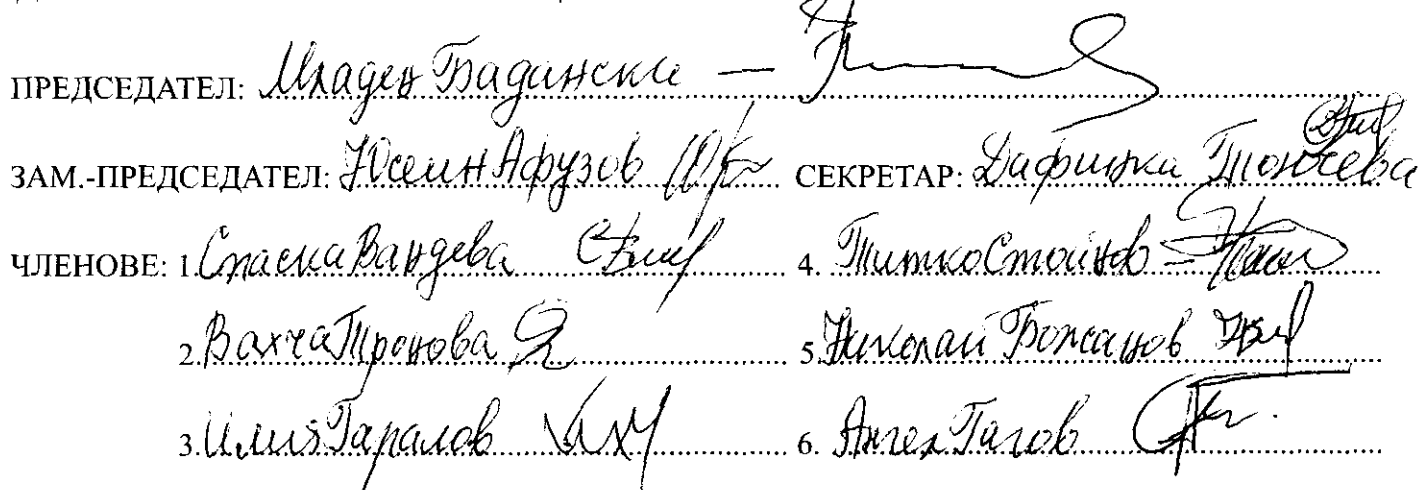 ПРЕДСЕДАТЕЛ: Младен Бадански
ЗАМ.-ПРЕДСЕДАТЕЛ: Юсеин Афузов СЕКРЕТАР: Дафинка Тончева
ЧЛЕНОВЕ: 1. Спаска Вандева 4. Титко Стоинов
2. Вахча Тронова 5. Николай Божанов
3. Илия Гаралов 6. Ангел Гагов